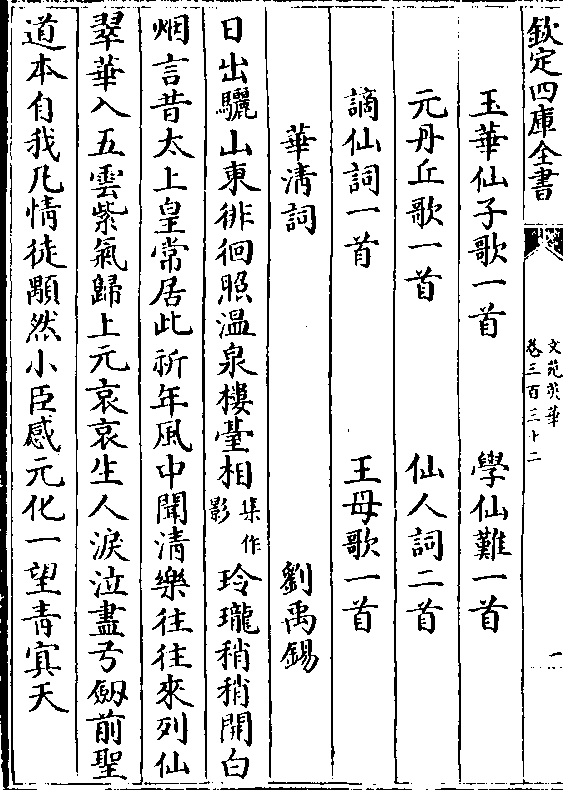 欽定四庫全書
文苑英華
卷三百三十二
一
玉華仙子歌一首 學仙難一首
元丹丘歌一首 仙人詞二首
謫仙詞一首 王母歌一首
華清詞 劉禹錫
日出驪山東徘徊照温泉樓臺相集作影玲瓏稍稍開白
烟言昔太上皇常居此祈年風中聞清樂徃徃來列仙
翠華入五雲紫氣歸上元哀哀生人淚泣盡弓劒前聖
道本自我凡情徒顒然小臣感元化一望青冥天